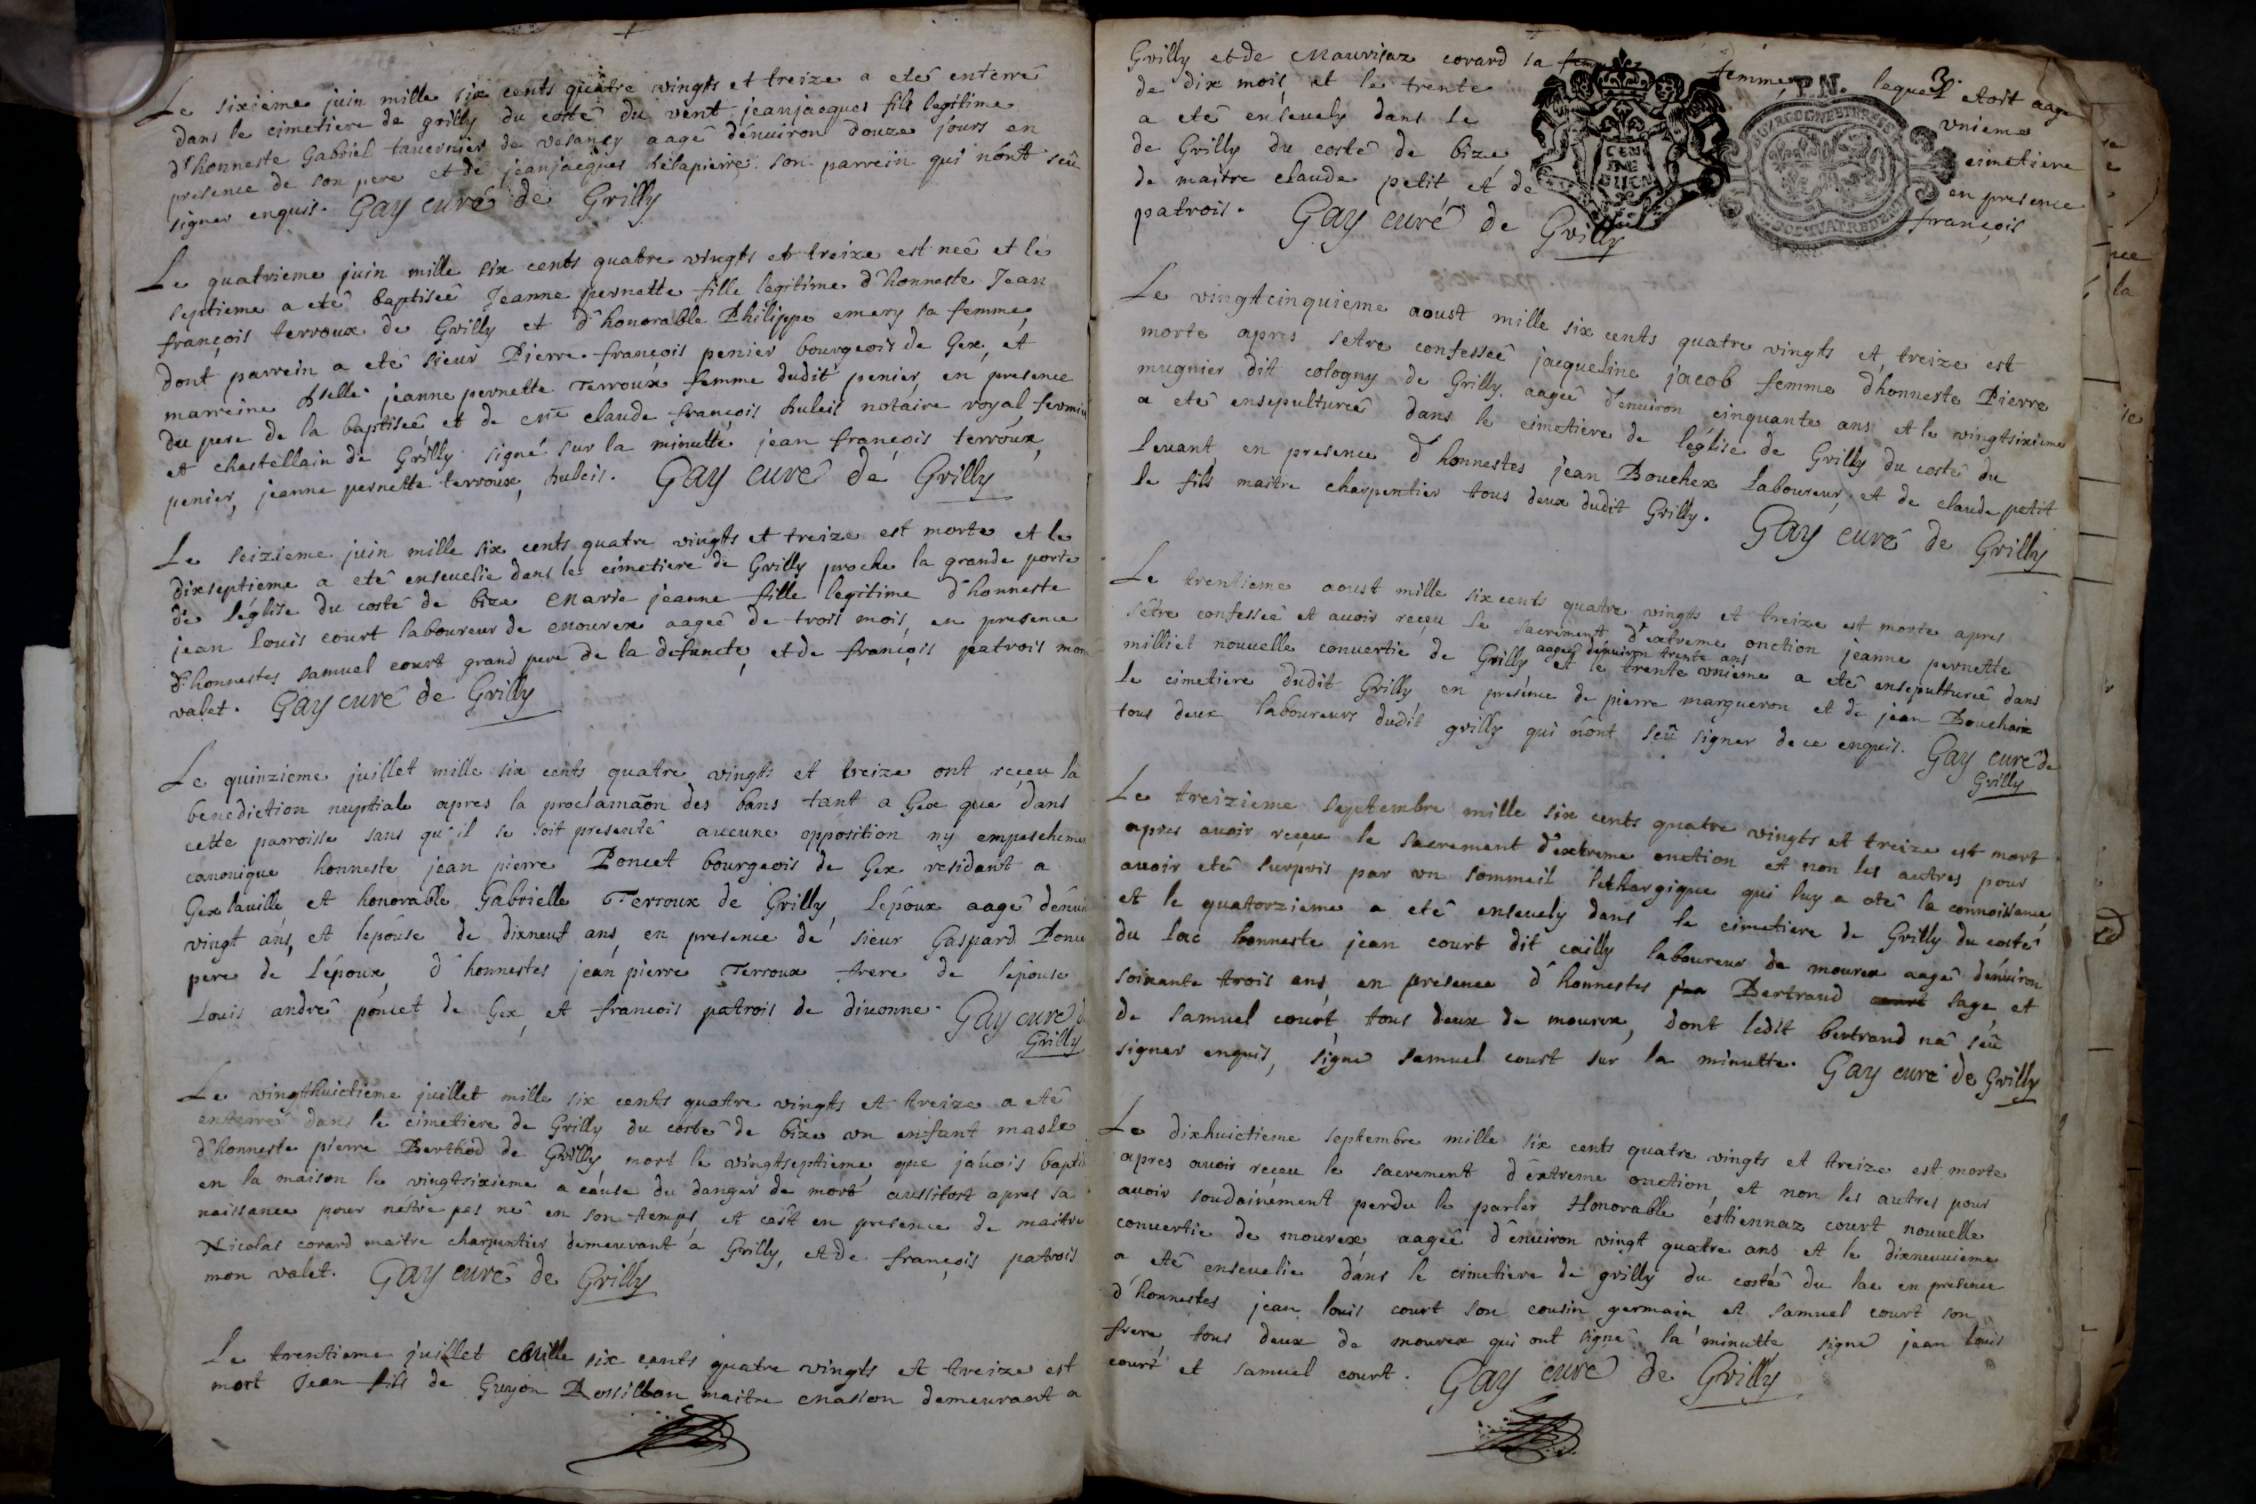 Le sixieme juin mille six cents quatre vingts et treize a eté enterré
dans le cimetiere de grilly du costé du vent jeanjacques fils legitime
d'honneste Gabriel tavernier de vesancy aagé d'enuiron douze jours en
presence de son pere et de jeanjacques delapierre son parrein qui n'ont seû
signer enquis. Gay curé de Grilly
Le quatrieme juin mille six cents quatre vingts et treize est neé et le
septieme a eté baptiseé Jeanne pernette fille legitime d'honneste Jean
françois terroux de Grilly et d'honorable Philippe emery sa femme,
dont parrein a eté sieur Pierre françois penier bourgeois de Gex, et
marreine dselle jeanne pernette Terroux femme dudit penier, en presence
du pere de la baptiseé et de Mre claude françois huleis notaire royal, fermier
et chastellain de Grilly signé sur la minutte jean françois terroux,
penier, jeanne pernette terroux, huleis. Gay curé de Grilly
Le seizieme juin mille six cents quatre vingts et treize est morte et le
dixseptieme a eté enseuelie dans le cimetiere de Grilly proche la grande porte
de l'église du costé de bize Marie jeanne fille legitime d'honneste
jean Louis court laboureur de Mourex aageé de trois mois, en presence
d'honnestes samuel court grand pere de la defuncte, et de françois patrois mon
valet. Gay curé de Grilly
Le quinzieme juillet mille six cents quatre vingts et treize ont reçeu la
benediction nuptiale apres la proclamaõn des bans tant a Gex que dans
cette parroisse sans qu'il se soit presenté aucune opposition ny empeschemen
canonique honneste jean pierre Poncet bourgeois de Gex residant a
Gex laville et honorable Gabrielle Terroux de Grilly, l'époux aagé d'enui
vingt ans, et l'epouse de dixneuf ans, en presence de sieur Gaspard Ponce
pere de l'époux, d'honnestes jean pierre Terroux frere de l'epouse
Louis andré poncet de Gex, et francois patrois de diuonne. Gay curé d
Grilly
Le vingthuictieme juillet mille six cents quatre vingts et treize a eté
enterré dans le cimetiere de Grilly du costé de bize un enfant masle
d'honneste pierre Berthod de Grilly mort le vingtseptieme, que jauois bapti
en la maison le vingtsixieme a cause du danger de mort aussitost apres sa
naissance pour netre pas né en son temps, et cest en presence de maitre
Nicolas corard maitre charpentier demeurant a Grilly, et de françois patrois
mon valet. Gay curé de Grilly
Le trentieme juillet Mille six cents quatre vingts et treize est
mort Jean fils de Guyon Rossillon maitre Masson demeurant a
Grilly et de Maurisaz corard sa femme, lequel etoit aagé
3.
P.N.
de dix mois et le trente unieme
a eté enseuely dans le cimetiere
de Grilly du costé de bize en presence
de maitre claude petit et de françois
patrois. Gay curé de Grilly
Le vingtcinquieme aoust mille six cents quatre vingts et treize est
morte apres setre confesseé jacqueline jacob femme d'honneste Pierre
mugnier dit cologny de Grilly, aageé d'enuiron cinquante ans et le vingtsixieme
a eté ensepultureé dans le cimetiere de l'église de Grilly du costé du
leuant en presence d'honnestes jean Bouchex laboureur, et de claude petit
le fils maitre charpentier tous deux dudit Grilly. Gay curé de Grilly
Le trentieme aoust mille six cents quatre vingts et treize est morte apres
sêtre confesseé et auoir reçeu le sacrement d'extreme onction jeanne pernette
aageé d'enuiron trente ans
milliet nouuelle conuertie de Grilly et le trente unieme a eté ensepultureé dans
le cimetiere dudit Grilly en presence de pierre margueron et de jean Bouchaix
tous deux laboureurs dudit grilly qui n'ont seû signer de ce enquis. Gay curé de
Grilly
Le treizieme septembre mille six cents quatre vingts et treize est mort
apres auoir reçeu le sacrement d'extreme onction et non les autres pour
auoir eté surpris par un sommeil lethargique qui luy a oté la connoissance,
et le quatorzieme a eté enseuely dans le cimetiere de Grilly du costé
du lac honneste jean court dit cailly laboureur de mourex aagé d'enuiron
soixante trois ans, en presence d'honnestes jean Bertrand court sage et
de samuel court, tous deux de mourex, dont ledit bertrand na seû
signer enquis, signé samuel court sur la minutte. Gay curé de Grilly
Le dixhuictieme septembre mille six cents quatre vingts et treize est morte
apres auoir reçeu le sacrement d'extreme onction, et non les autres pour
auoir soudainement perdu le parler Honorable estiennaz court nouuelle
conuertie de mourex aageé d'enuiron vingt quatre ans et le dixneuuieme
a eté enseuelie dans le cimetiere de grilly du costé du lac en presence
d'honnestes jean louis court son cousin germain et samuel court son
frere, tous deux de mourex qui ont signé la minutte signé jean louis
court et samuel court. Gay curé de Grilly